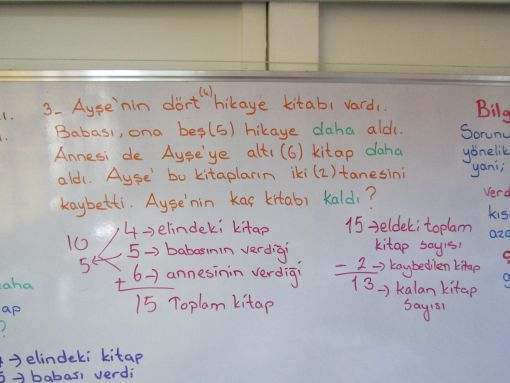 3- Ayşe'nin dört (4) hikaye kitabı vardı.
Babası, ona beş (5) hikaye daha aldı.
Annesi de Ayşe'ye altı (6) kitap daha
aldı. Ayşe' bu kitapların iki (2) tanesini
kaybetti. Ayşe'nin kaç kitabı kaldı?
4 → elindeki kitap
10
5 → babasının verdiği
5
+ 6 → annesinin verdiği
15 Toplam kitap
15 → eldeki toplam
kitap sayısı
- 2 → kaybedilen kitap
13 → kalan kitap
sayısı
Bilg
Sorunu
yönelik
yani;
verd
kıs
aza
daha
ap
?
→ elindeki kitap
→ babası verdi